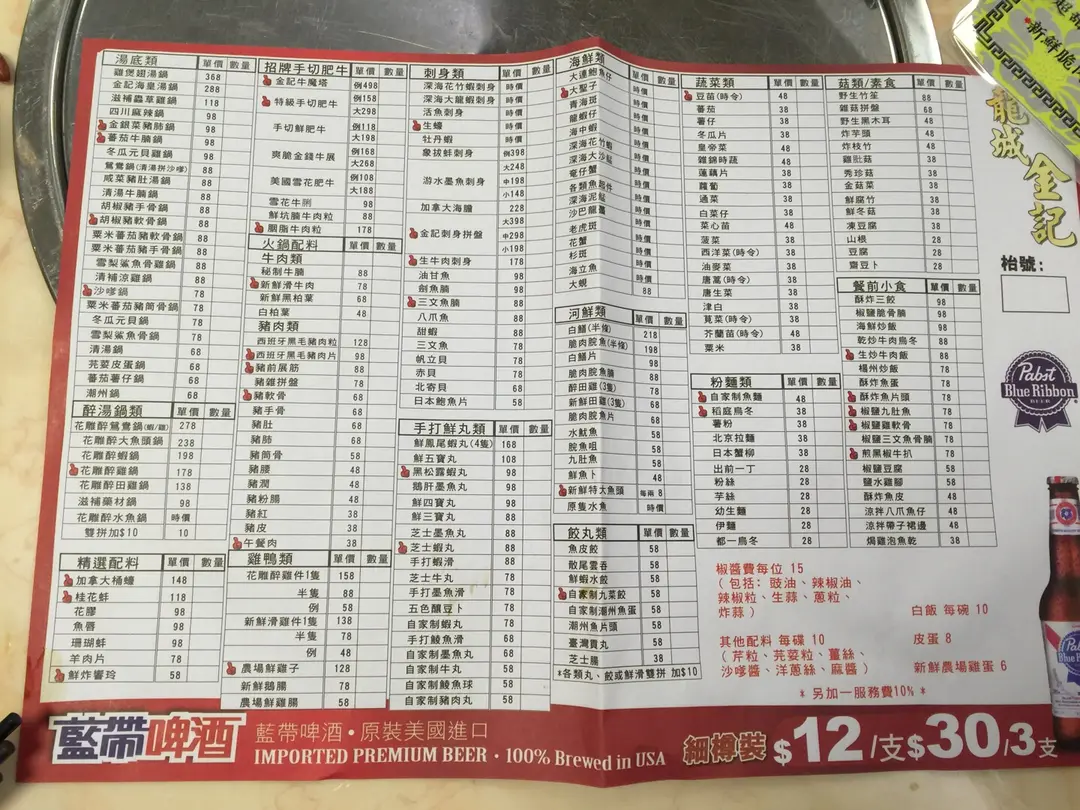 湯底類 單價 數量
雞煲翅湯鍋 368
金記海皇湯鍋 288
滋補蟲草雞鍋 118
四川麻辣鍋 98
金銀菜豬肺鍋 98
蕃茄牛腩鍋 98
冬瓜元貝雞鍋 98
鴛鴦鍋(清湯拼沙嗲) 88
咸菜豬肚湯鍋 88
清湯牛腩鍋 88
胡椒豬手骨鍋 88
胡椒豬軟骨鍋 88
粟米蕃茄豬軟骨鍋 88
粟米蕃茄豬手骨鍋 88
雪梨鯊魚骨雞鍋 88
清補涼雞鍋 88
沙嗲鍋 78
粟米蕃茄豬筒骨鍋 78
冬瓜元貝鍋 78
雪梨鯊魚骨鍋 78
清湯鍋 68
芫荽皮蛋鍋 68
蕃茄薯仔鍋 68
潮州鍋 68
醉湯鍋類 單價 數量
花雕醉鴛鴦鍋(蝦/雞) 278
花雕醉大魚頭鍋 238
花雕醉蝦鍋 198
花雕醉雞鍋 178
花雕醉田雞鍋 138
滋補藥材鍋 98
花雕醉水魚鍋 時價
雙拼加$10 10
精選配料 單價 數量
加拿大桶蠔 148
桂花蚌 118
花膠 98
魚唇 98
珊瑚蚌 98
羊肉片 78
鮮炸響玲 58
招牌手切肥牛 單價 數量
金記牛魔塔 例498
特級手切肥牛 例158
大298
手切鮮肥牛 例118
大198
爽脆金錢牛展 例168
大268
美國雪花肥牛 例108
大188
雪花牛脷 98
鮮坑腩牛肉粒 88
胭脂牛肉粒 178
火鍋配料 單價 數量
牛肉類
秘制牛腩 88
新鮮滑牛肉 78
新鮮黑柏葉 68
白柏葉 48
豬肉類
西班牙黑毛豬肉粒 128
西班牙黑毛豬肉片 98
豬前展筋 88
豬雜拼盤 78
豬軟骨 68
豬手骨 68
豬肚 68
豬肺 68
豬筒骨 58
豬腰 48
豬潤 48
豬粉腸 48
豬紅 38
豬皮 38
午餐肉 38
雞鴨類 單價 數量
花雕醉雞件1隻 158
半隻 88
例 58
新鮮滑雞件1隻 138
半隻 78
例 48
農場鮮雞子 128
新鮮鵝腸 78
農場鮮雞腸 58
刺身類 單價 數量
深海花竹蝦刺身 時價
深海大龍蝦刺身 時價
活魚刺身 時價
生蠔 時價
牡丹蝦 時價
象拔蚌刺身 例398
大248
游水墨魚刺身 中198
小148
加拿大海膽 228
大398
金記刺身拼盤 中298
小198
生牛肉刺身 178
油甘魚 98
劍魚腩 98
三文魚腩 88
八爪魚 88
甜蝦 88
三文魚 78
帆立貝 78
赤貝 78
北寄貝 68
日本鮑魚片 58
手打鮮丸類 單價 數量
鮮鳳尾蝦丸(4隻) 168
鮮五寶丸 108
黑松露蝦丸 98
鵝肝墨魚丸 98
鮮四寶丸 98
鮮三寶丸 88
芝士墨魚丸 88
芝士蝦丸 88
手打蝦滑 88
芝士牛丸 78
手打墨魚滑 78
五色釀豆卜 78
自家制蝦丸 78
手打鯪魚滑 68
自家制墨魚丸 68
自家制牛丸 58
自家制鯪魚球 58
自家制豬肉丸 58
海鮮類 單價 數量
大連鮑魚仔 時價
大聖子 時價
青海斑 時價
龍蝦仔 時價
海中蝦 時價
深海花竹蝦 時價
深海大沙蜆 時價
奄仔蟹 時價
各類魚起件 時價
深海泥鯭 時價
沙巴龍躉 時價
老虎斑 時價
花蟹 時價
杉斑 時價
海立魚 時價
大蜆 88
河鮮類 單價 數量
白鱔(半條) 218
脆肉脘魚(半條) 198
白鱔片 98
脆肉脘魚腩 88
醉田雞(3隻) 78
新鮮田雞(3隻) 68
脆肉脘魚片 68
水魷魚 68
脘魚咀 58
九肚魚 58
鮮魚卜 48
新鮮特大魚頭 每兩 8
原隻水魚 時價
餃丸類 單價 數量
魚皮餃 58
散尾雲吞 58
鮮蝦水餃 58
自家制九菜餃 58
自家制潮州魚蛋 58
潮州魚片頭 58
臺灣貢丸 58
芝士腸 38
*各類丸、餃或鮮滑雙拼 加$10
蔬菜類 單價 數量
豆苗(時令) 48
蕃茄 38
薯仔 38
冬瓜片 38
皇帝菜 48
雜錦時蔬 48
蓮藕片 38
蘿蔔 38
通菜 38
白菜仔 38
菜心苗 48
菠菜 38
西洋菜(時令) 38
油麥菜 38
唐蒿(時令) 38
唐生菜 38
津白 38
莧菜(時令) 38
芥蘭苗(時令) 48
粟米 38
粉麵類 單價 數量
自家制魚麵 48
稻庭烏冬 38
薯粉 38
北京拉麵 38
日本蟹柳 38
出前一丁 28
粉絲 28
芋絲 28
幼生麵 28
伊麵 28
都一烏冬 28
菇類/素食 單價 數量
野生竹笙 88
雜菇拼盤 68
野生黑木耳 48
炸芋頭 48
炸枝竹 48
雞肶菇 38
秀珍菇 38
金菇菜 38
鮮腐竹 38
鮮冬菇 38
凍豆腐 38
山根 28
豆腐 28
齋豆卜 28
餐前小食 單價 數量
酥炸三餃 98
椒鹽脆骨腩 98
海鮮炒飯 98
乾炒牛肉烏冬 88
生炒牛肉飯 88
楊州炒飯 88
酥炸魚蛋 78
酥炸魚片頭 78
椒鹽九肚魚 78
椒鹽雞軟骨 78
椒鹽三文魚骨腩 78
煎黑椒牛扒 78
椒鹽豆腐 58
鹽水雞腳 58
酥炸魚皮 48
涼拌八爪魚仔 48
涼拌帶子裙邊 48
焗雞泡魚乾 38
椒醬費每位 15
(包括:豉油、辣椒油、
辣椒粒、生蒜、蔥粒、
炸蒜)
白飯 每碗 10
其他配料 每碟 10
(芹粒、芫荽粒、薑絲、
沙嗲醬、洋蔥絲、麻醬)
皮蛋 8
新鮮農場雞蛋 6
*另加一服務費10%*
新鮮脆
龍城金記
枱號:
Pabst
Blue Ribbon
BEER
藍帶啤酒
藍帶啤酒・原裝美國進口
IMPORTED PREMIUM BEER・100% Brewed in USA
細樽裝 $12/支 $30/3支